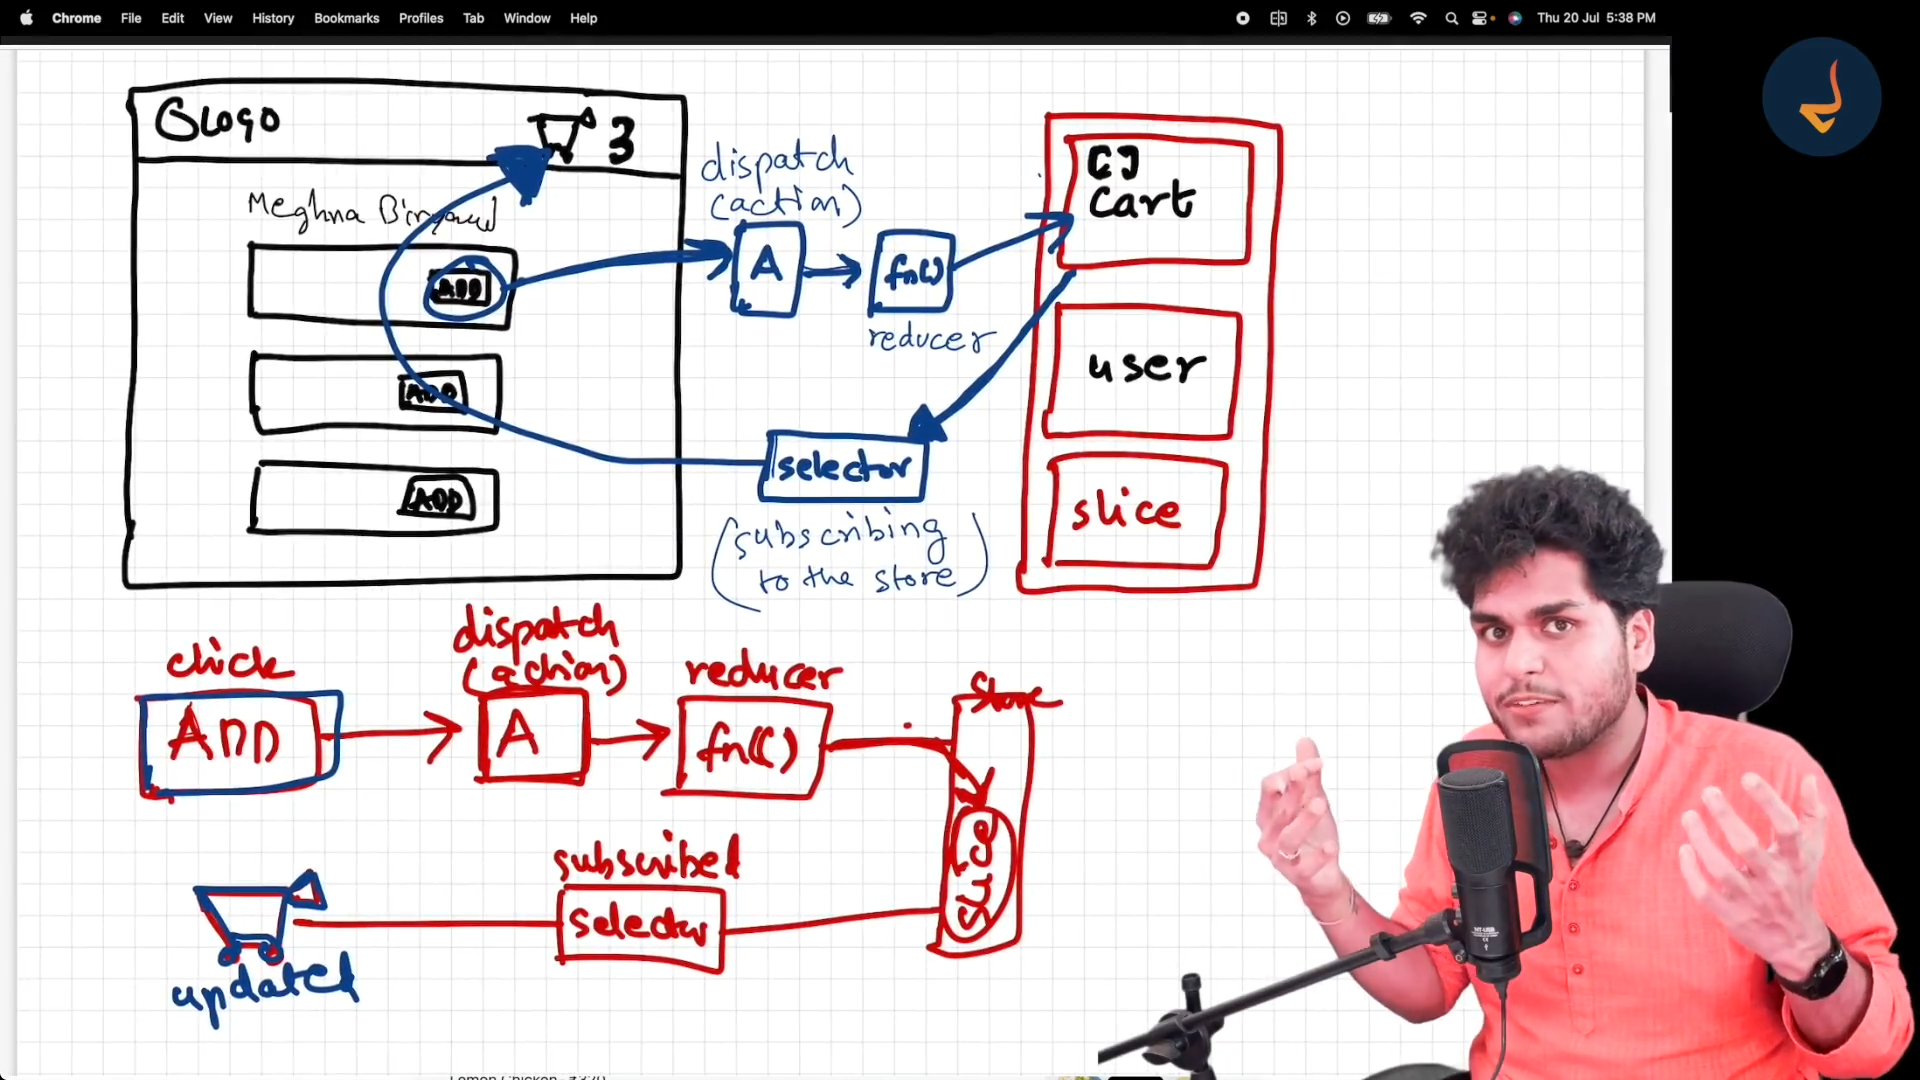 Chrome File Edit View History Bookmarks Profiles Tab Window Help
Thu 20 Jul 5:38 PM
Logo
3
Meghna Biryani
ADD
ADD
ADD
dispatch
(action)
A
fn()
reducer
[]
cart
user
slice
selector
(subscribing
to the store)
click
ADD
dispatch
(action)
A
reducer
fn()
store
slice
subscribed
selector
updated